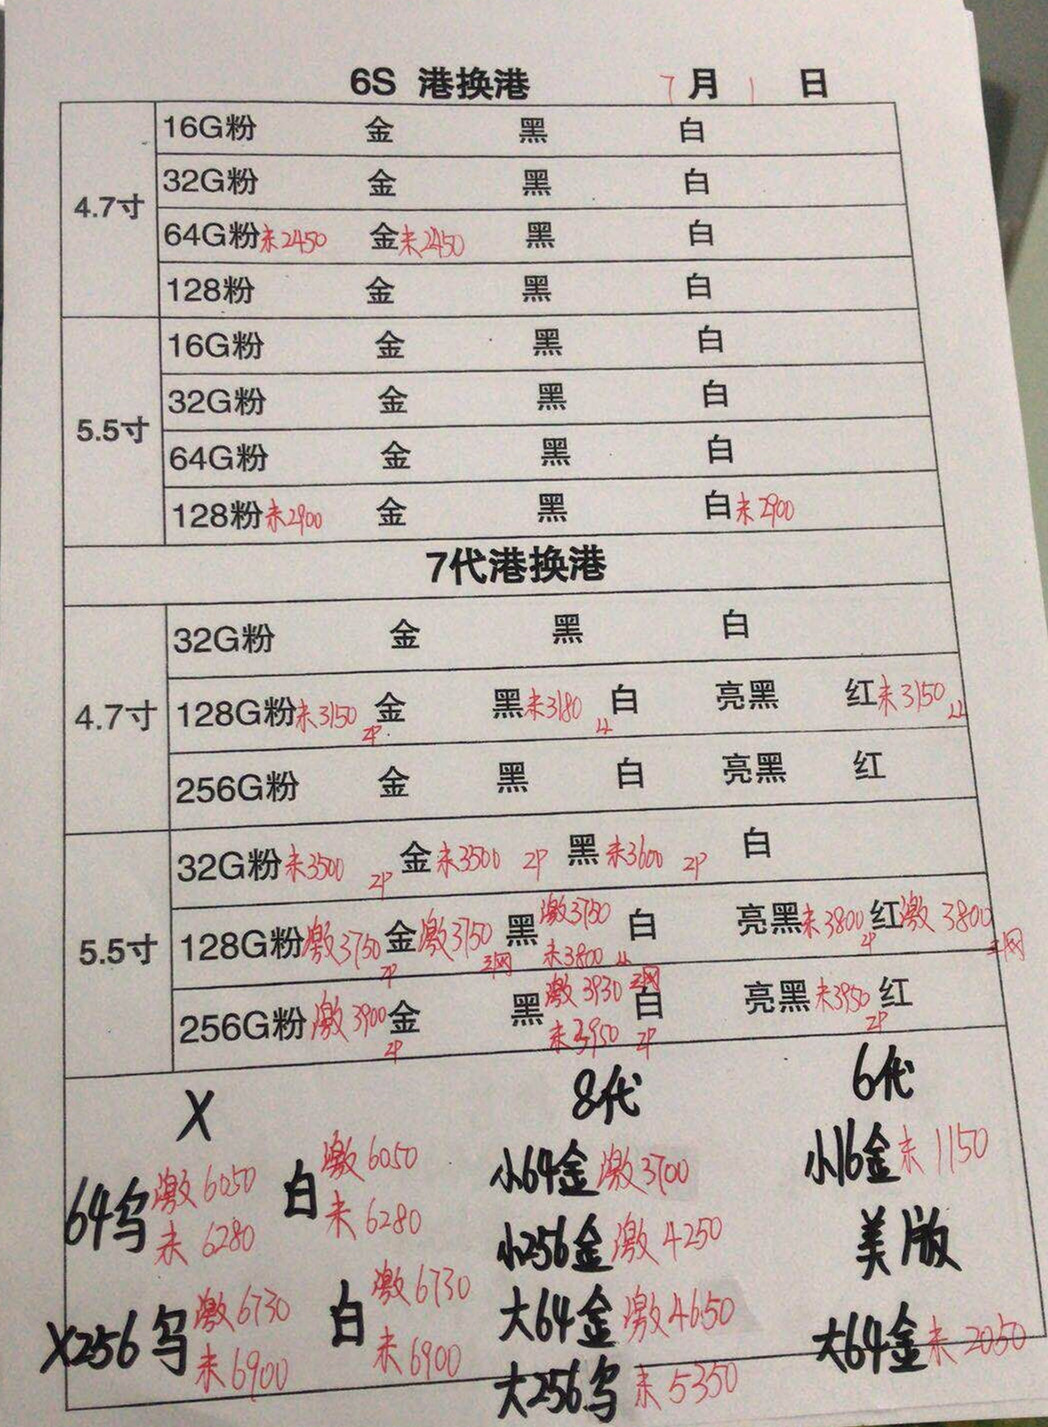 6S 港换港 7月1日
4.7寸
16G粉 金 黑 白
32G粉 金 黑 白
64G粉未2450 金未2450 黑 白
128粉 金 黑 白
5.5寸
16G粉 金 黑 白
32G粉 金 黑 白
64G粉 金 黑 白
128粉未2900 金 黑 白未2900
7代港换港
4.7寸
32G粉 金 黑 白
128G粉未3150 2P 金 黑未3180 LL 白 亮黑 红未3150 LL
256G粉 金 黑 白 亮黑 红
5.5寸
32G粉未3500 2P 金未3500 2P 黑未3600 2P 白
128G粉激3750 2P 金激3750 三网 黑激3750 未3800 LL 白 亮黑未3800 2P 红激3800 三网
256G粉激3900 2P 金 黑激3930 三网 未3950 2P 白 亮黑未3950 2P 红
X 8代 6代
64乌激6050 未6280 白激6050 未6280
X256乌激6730 未6900 白激6730 未6900
小64金激3700
小256金激4250
大64金激4650
大256乌未5350
小16金未1150
美版
大64金未2050